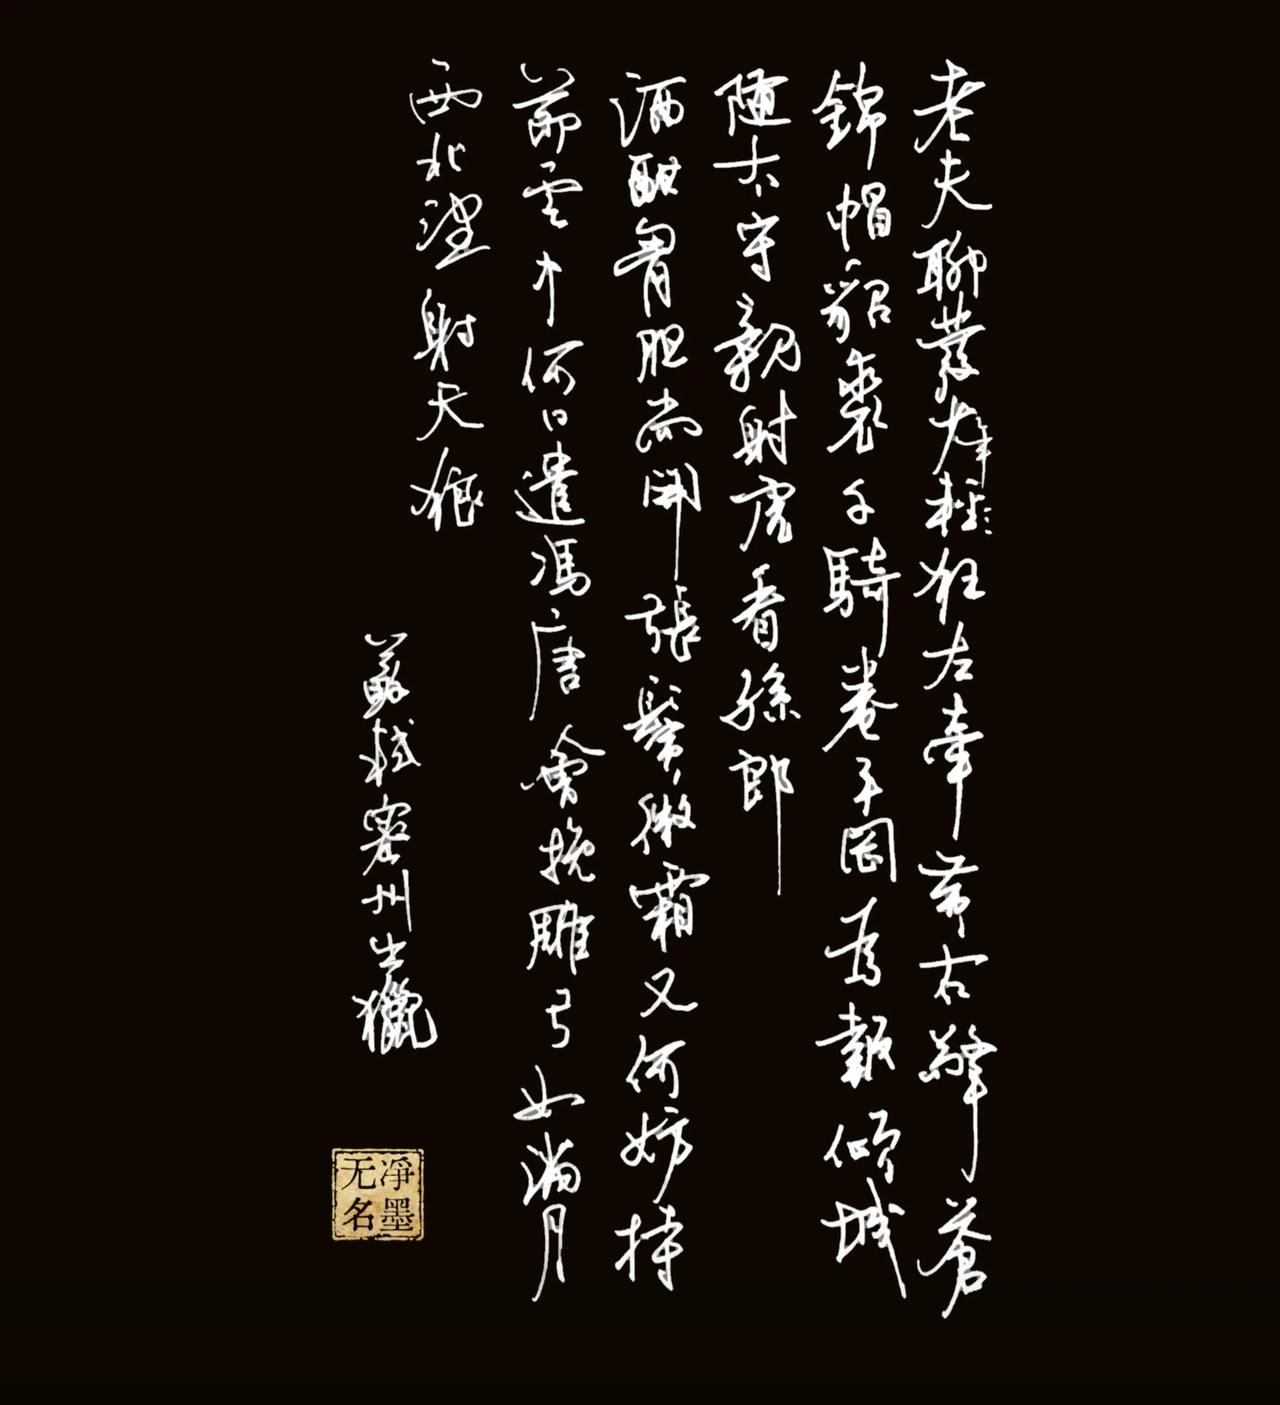 老夫聊發少年輕狂左牽黃右擎蒼
錦帽貂裘千騎卷平岡為報傾城
隨太守親射虎看孫郎
酒酣胷胆尚開張鬢微霜又何妨持
節雲中何日遣馮唐會挽雕弓如滿月
西北望射天狼
蘇軾密州出獵
凈墨
无名